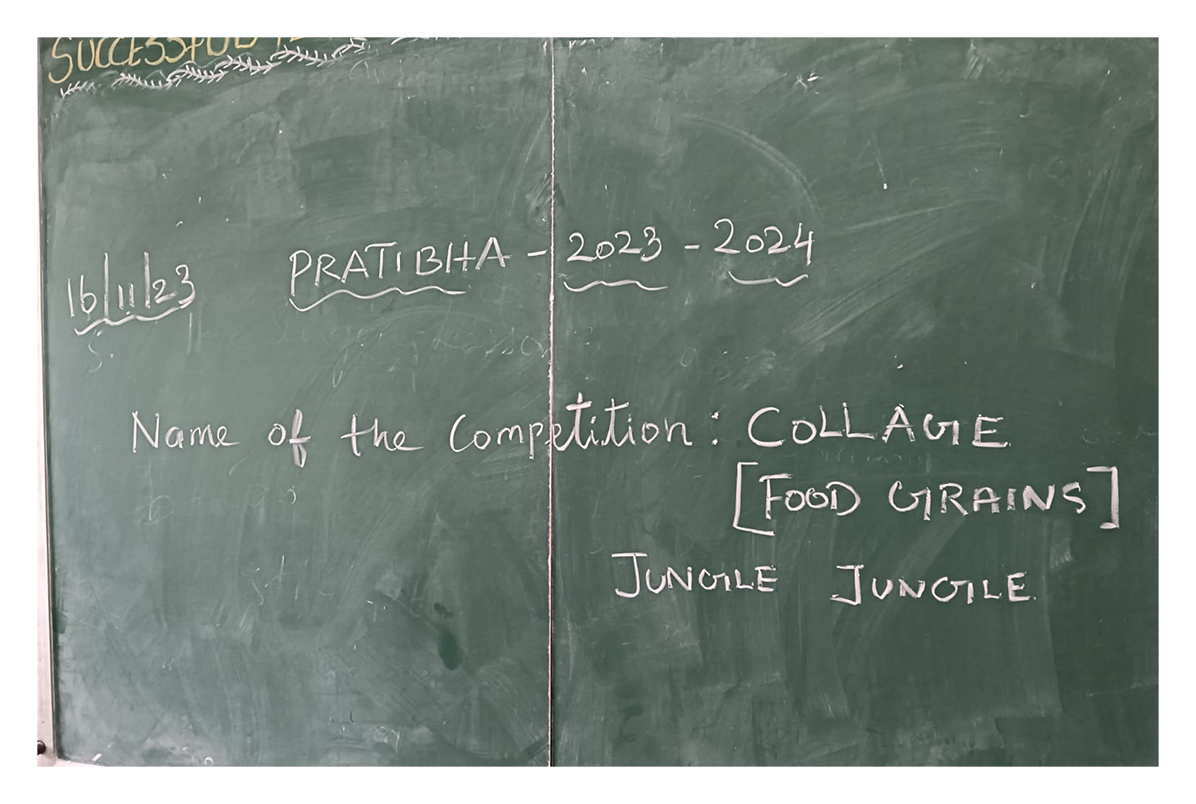 SUCCESSFUL
16/11/23 PRATIBHA - 2023 - 2024
Name of the Competition : COLLAGE
[FOOD GRAINS]
JUNGLE JUNGLE.